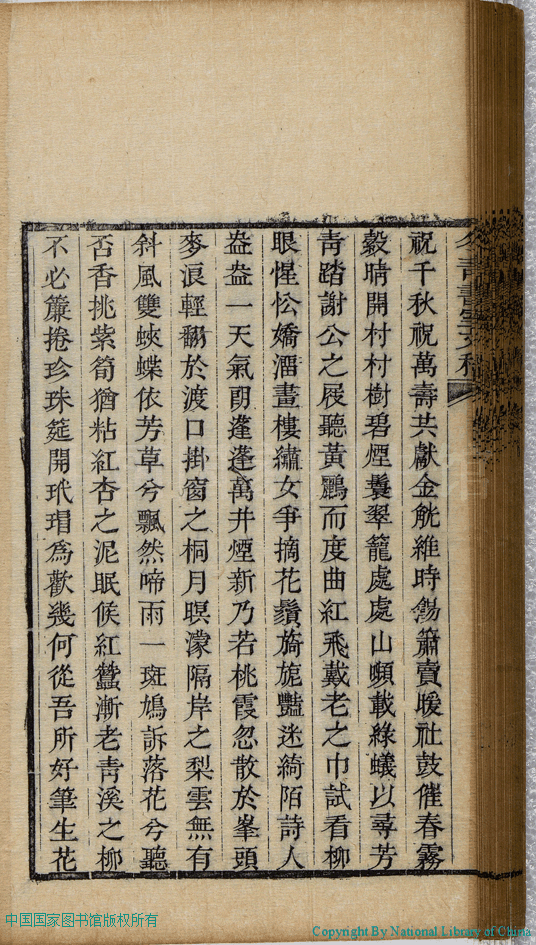 祝千秋祝萬壽共獻金觥維時餳簫賣暖社鼓催春霧
縠晴開村村樹碧煙鬟翠籠處處山嚬載綠蟻以尋芳
靑踏謝公之屐聽黃鸝而度曲紅飛戴老之巾試看柳
眼惺忪嬌溜畫樓繡女爭摘花鬚旖旎豔迷綺陌詩人
盎盎一天氣朗蓬蓬萬井煙新乃若桃霞忽散於峯頭
麥浪輕翻於渡口掛窗之桐月暝濛隔岸之梨雲無有
斜風雙蛺蝶依芳草兮飄然啼雨一斑鳩訴落花兮聽
否香挑紫筍猶粘紅杏之泥眠候紅蠶漸老靑溪之柳
不必簾捲珍珠筵開玳瑁爲歡幾何從吾所好筆生花
中国国家图书馆版权所有
Copyright By National Library of China